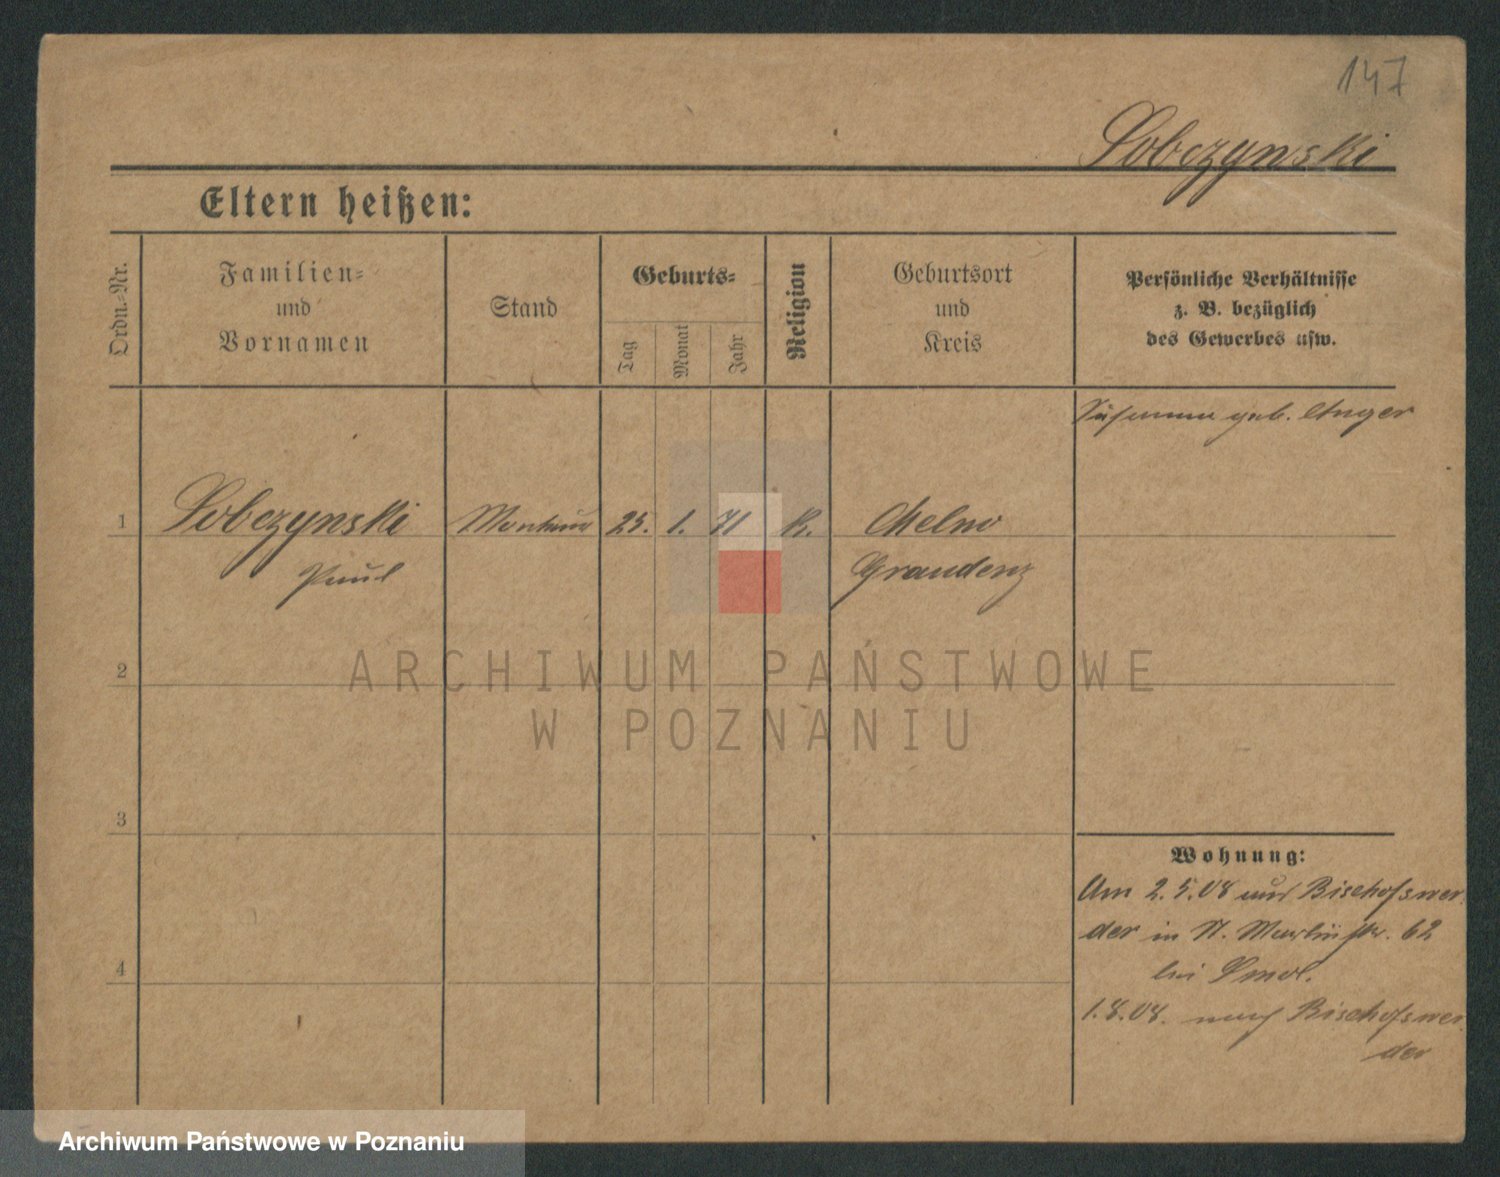 147
Sobczynski
Eltern heißen:
Ordn.-Nr.
Familien-
und
Vornamen
Stand
Geburts-
Tag
Monat
Jahr
Religion
Geburtsort
und
Kreis
Persönliche Verhältnisse
z. B. bezüglich
des Gewerbes usw.
geb. Unger
1 Sobczynski Monteur 25. 1. 71 K. Melno
Paul Graudenz
2
3
4
Wohnung:
Am 2.5.08 aus Bischofswer
der in St. Martinstr. 62
bei Smol.
1.8.08. nach Bischofswer
der
ARCHIWUM PAŃSTWOWE
W POZNANIU
Archiwum Państwowe w Poznaniu